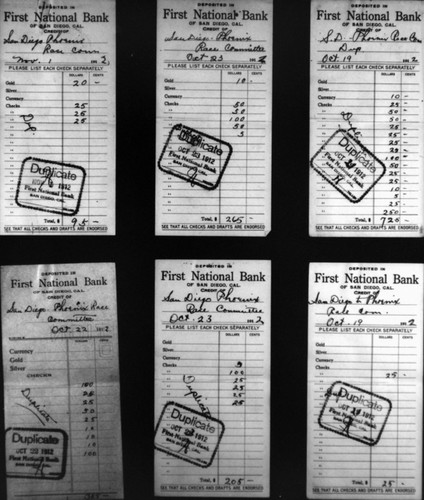 DEPOSITED IN
First National Bank
OF SAN DIEGO, CAL.
CREDIT OF
San Diego Phoenix
Race Com
Nov. 1 2.
PLEASE LIST EACH CHECK SEPARATELY
DOLLARS CENTS
Gold 20 -
Silver
Currency
Checks 25
25
25
Duplicate
NOV 1912
First National Bank
Total, $ 95 -
SEE THAT ALL CHECKS AND DRAFTS ARE ENDORSED
DEPOSITED IN
First National Bank
OF SAN DIEGO, CAL.
CREDIT OF
San Diego - Phoenix
Race Committee
Oct 23 2
PLEASE LIST EACH CHECK SEPARATELY
DOLLARS CENTS
Gold 10 -
Silver
Currency
Checks 50
50
100
50
5
Duplicate
OCT 23 1912
First National Bank
Total, $ 265 -
SEE THAT ALL CHECKS AND DRAFTS ARE ENDORSED
First National Bank
OF SAN DIEGO, CAL.
CREDIT OF
S.D. - Phoenix Race Com
Dup
Oct 19 2
PLEASE LIST EACH CHECK SEPARATELY
DOLLARS CENTS
Gold
Silver
Currency 10 -
Checks 25 -
50 -
50
25
25
100
50
25
10
5
25
250
Duplicate
1912
First National Bank
Total, $ 720 -
SEE THAT ALL CHECKS AND DRAFTS ARE ENDORSED
DEPOSITED IN
First National Bank
OF SAN DIEGO, CAL.
CREDIT OF
San Diego Phoenix Race
Committee
Oct 22 191 2
Currency
Gold
Silver
CHECKS
100
25
25
Duplicate
Duplicate
OCT 22 1912
First National Bank
100
DEPOSITED IN
First National Bank
OF SAN DIEGO, CAL.
CREDIT OF
San Diego Phoenix
Race Committee
Oct. 23 191 2
PLEASE LIST EACH CHECK SEPARATELY
DOLLARS CENTS
Gold
Silver
Currency
Checks 5
100
25
25
25
25
Duplicate
Duplicate
OCT 23 1912
First National Bank
Total, $ 205 -
SEE THAT ALL CHECKS AND DRAFTS ARE ENDORSED
DEPOSITED IN
First National Bank
OF SAN DIEGO, CAL.
CREDIT OF
San Diego to Phoenix
Race Com.
Oct. 19 191 2
PLEASE LIST EACH CHECK SEPARATELY
DOLLARS CENTS
Gold
Silver
Currency
Checks 25 -
Duplicate
OCT 19 1912
First National Bank
Total, $ 25 -
SEE THAT ALL CHECKS AND DRAFTS ARE ENDORSED